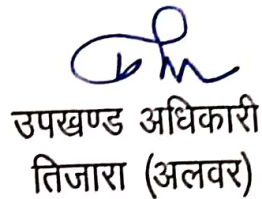 उपखण्ड अधिकारी
तिजारा (अलवर)